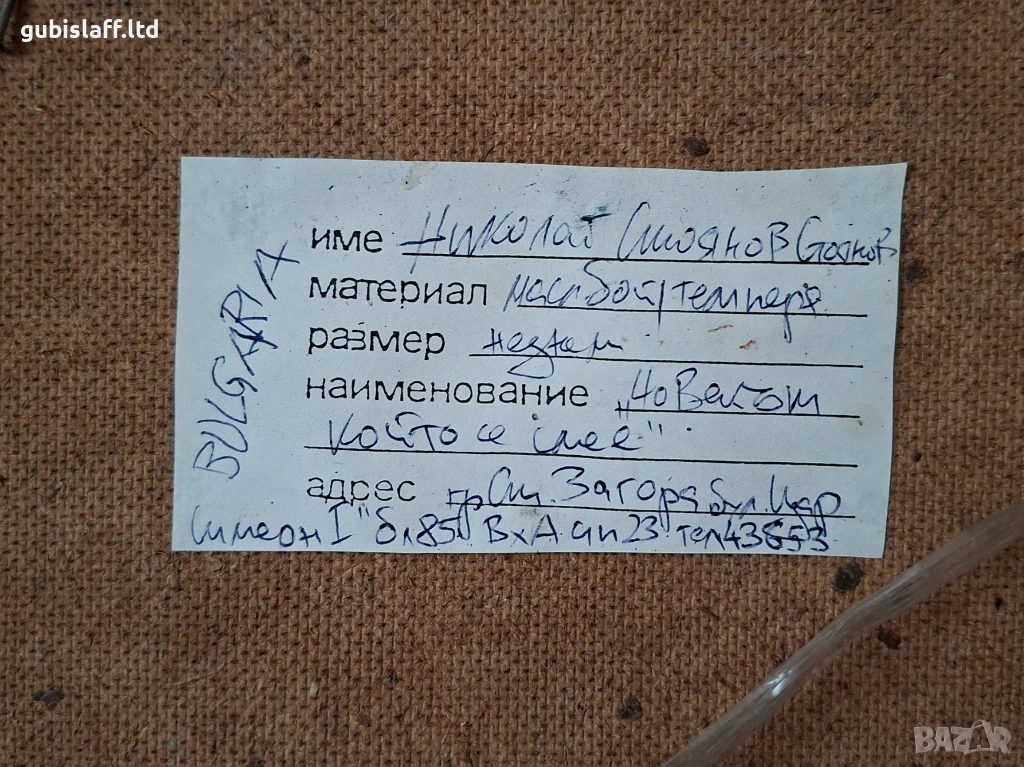 gubislaff.ltd
име Николай Стоянов Стоянов
материал маслбой темпера
размер
наименование „Човекът
който се смее"
адрес гр Ст. Загора бул. Цар
Симеон I" бл85 ВхА ап23 тел43853
BULGARIA
BAZAR